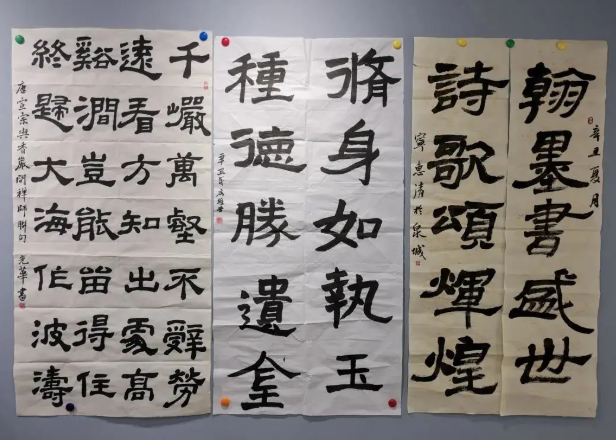 辛丑夏月
翰墨書盛世
詩歌頌煇煌
寧惠清於泉城
脩身如執玉
種德勝遺金
辛丑夏
千巖萬壑不辭勞
遠看方知出處高
谿澗豈能留得住
終歸大海作波濤
唐宣宗與香嚴閒禪師聯句 光華書